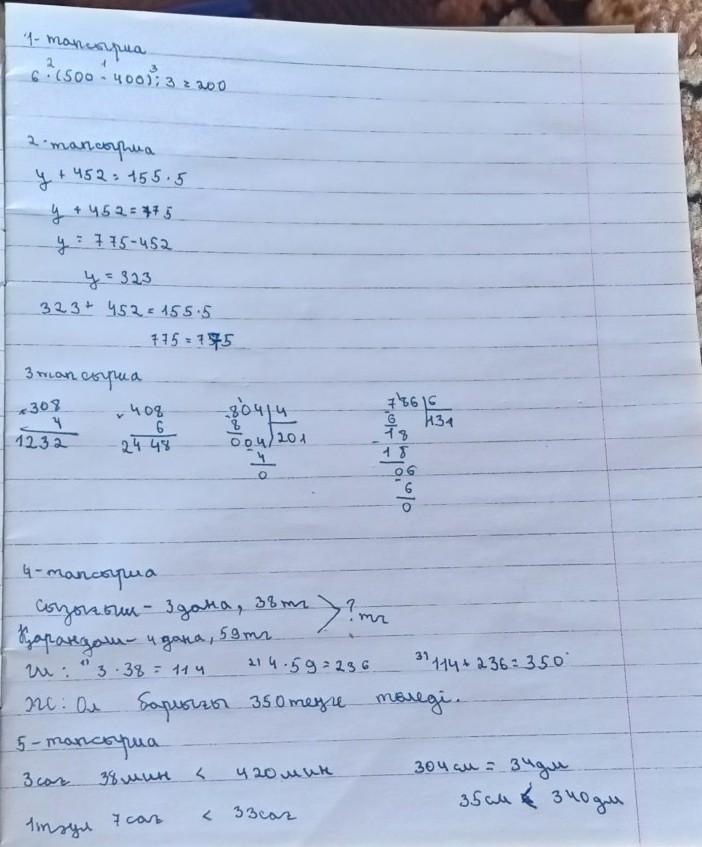 1-тапсырма
6 · (500 - 400) : 3 = 200
2-тапсырма
у + 452 = 155 · 5
у + 452 = 775
у = 775 - 452
у = 323
323 + 452 = 155 · 5
775 = 775
3 тапсырма
308 408 804 4 786 6
4 6 8 201 6 131
1232 2448 004 18
4 18
0 06
6
0
4-тапсырма
Сызғыш - 3 дана, 38 тг
? тг
Қарандаш - 4 дана, 59 тг
Ш: 1) 3 · 38 = 114 2) 4 · 59 = 236 3) 114 + 236 = 350
Ж: Ол барлығы 350 теңге төледі.
5-тапсырма
3 сағ 38 мин < 420 мин 304 см = 34 дм
35 см < 340 дм
1 тәул 7 сағ < 33 сағ